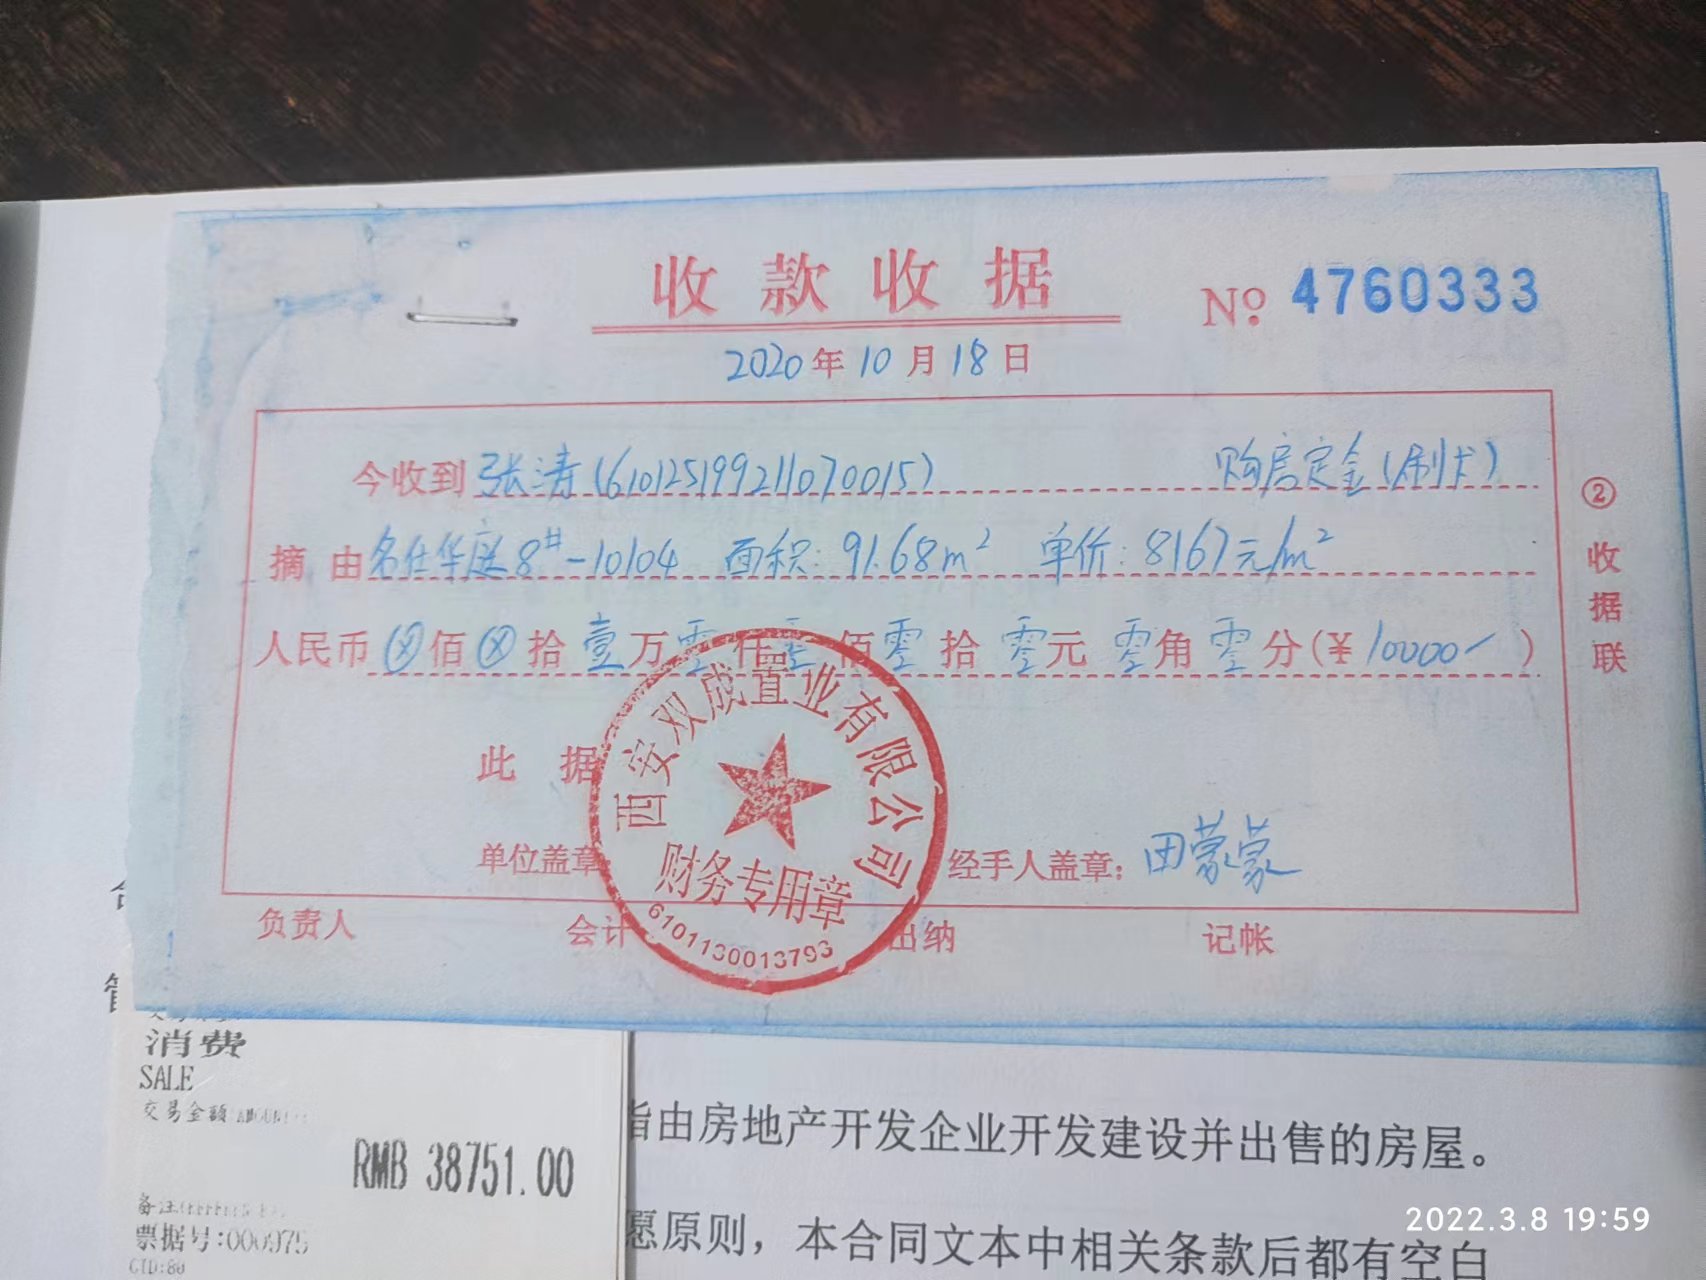 收款收据
No. 4760333
2020年10月18日
今收到 张涛(610125199211070015) 购房定金(刷卡)
摘由 名仕华庭8#-10104 面积:91.68m² 单价:8167元/m²
人民币 ⊗佰⊗拾壹万零仟零佰零拾零元零角零分(¥10000-)
此据
单位盖章: 经手人盖章: 田蒙蒙
西安双成置业有限公司
财务专用章
6101130013793
负责人 会计 出纳 记帐
② 收据联
消费
SALE
交易金额
RMB 38751.00
备注
票据号:000975
指由房地产开发企业开发建设并出售的房屋。
愿原则，本合同文本中相关条款后都有空白
2022.3.8 19:59